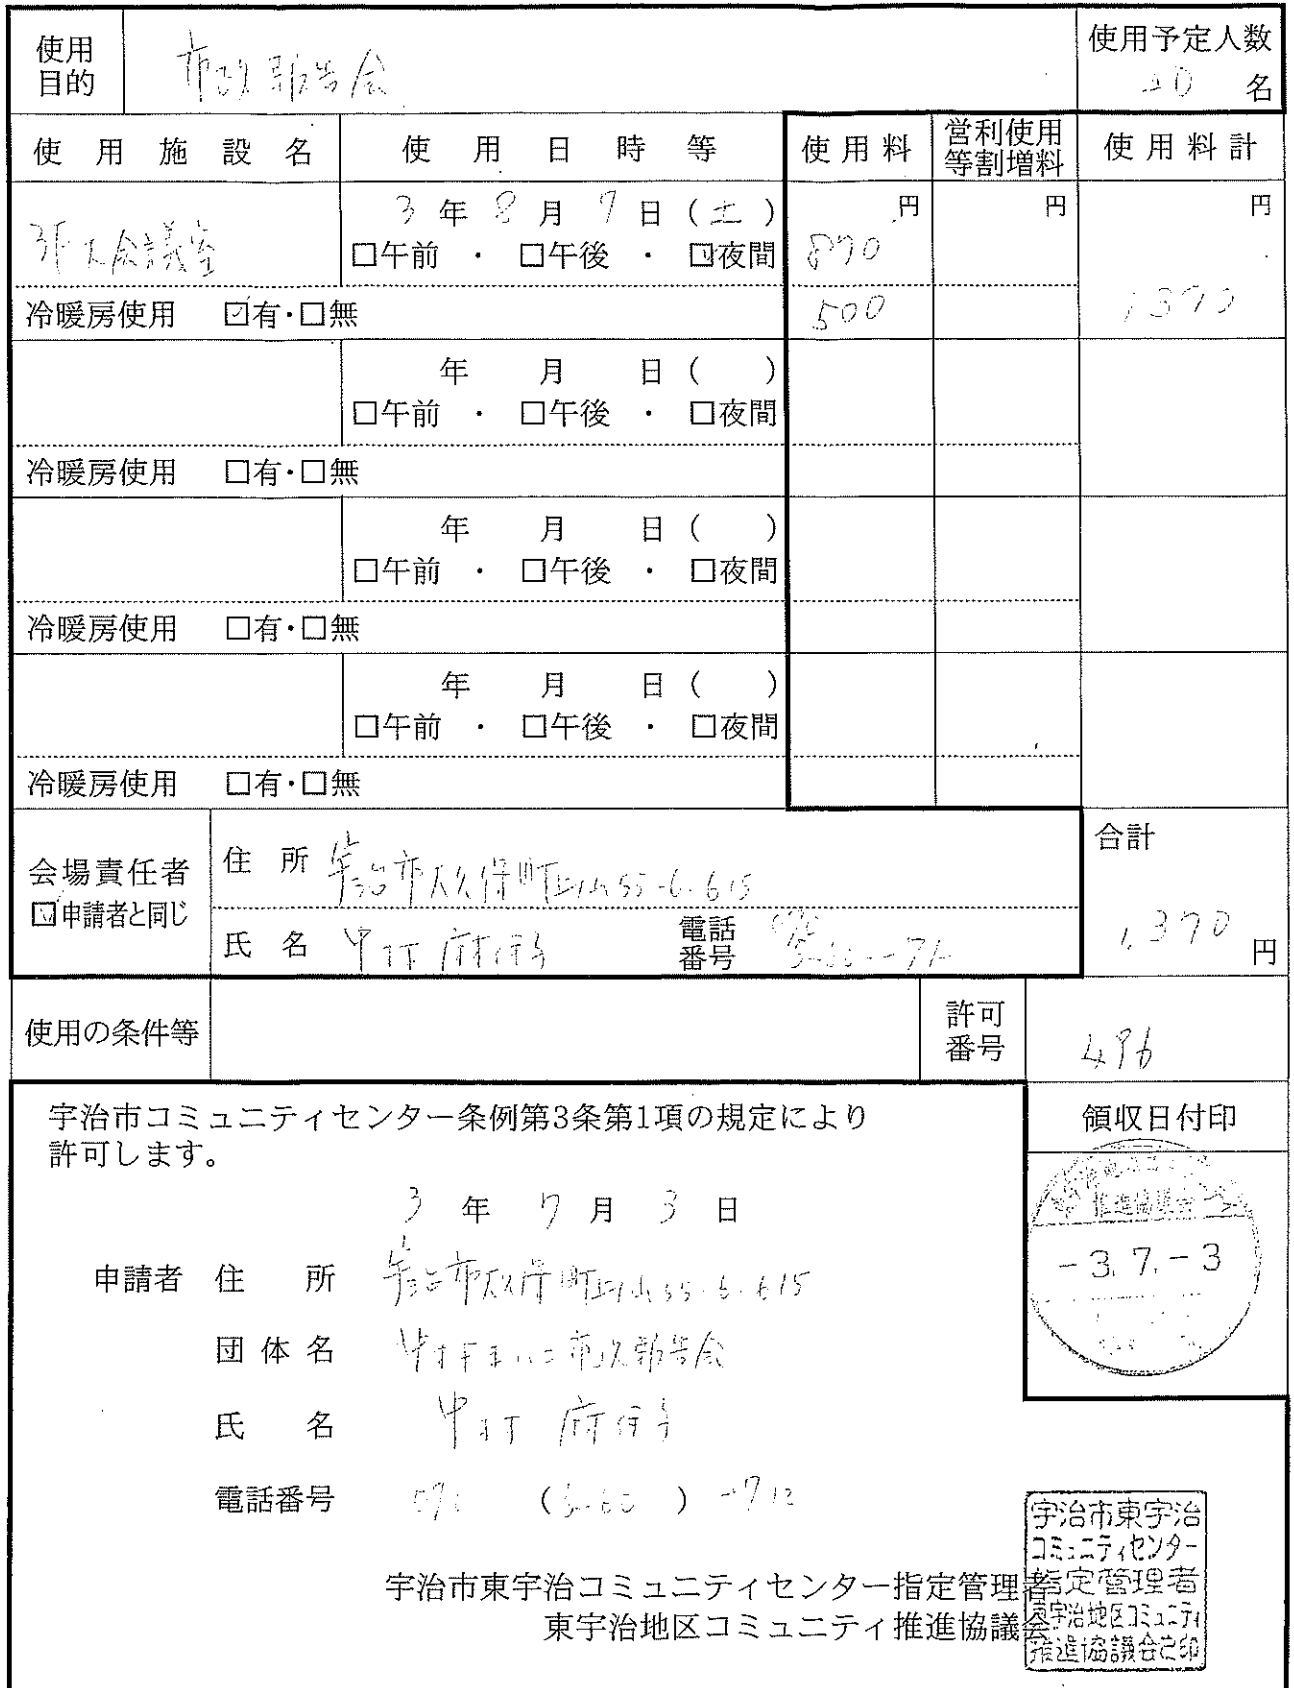 使用目的 市政報告会 使用予定人数 20 名
使用施設名 使用日時等 使用料 営利使用等割増料 使用料計
3年 8月 7日 (土) 円 円 円
大会議室 □午前 ・ □午後 ・ ☑夜間 870
冷暖房使用 ☑有・□無 500 1370
年 月 日 ( )
□午前 ・ □午後 ・ □夜間
冷暖房使用 □有・□無
年 月 日 ( )
□午前 ・ □午後 ・ □夜間
冷暖房使用 □有・□無
年 月 日 ( )
□午前 ・ □午後 ・ □夜間
冷暖房使用 □有・□無
会場責任者 ☑申請者と同じ
住所 宇治市大久保町上ノ山55-6-615
氏名 中村 麻伊子 電話番号
合計 1,370 円
使用の条件等 許可番号 496
宇治市コミュニティセンター条例第3条第1項の規定により
許可します。
領収日付印
推進協議会
-3.7.-3
3 年 7 月 3 日
申請者 住所 宇治市大久保町上ノ山55-6-615
団体名 市政報告会
氏名 中村 麻伊子
電話番号
宇治市東宇治コミュニティセンター指定管理者
東宇治地区コミュニティ推進協議会
宇治市東宇治
コミュニティセンター
指定管理者
東宇治地区コミュニティ
推進協議会之印